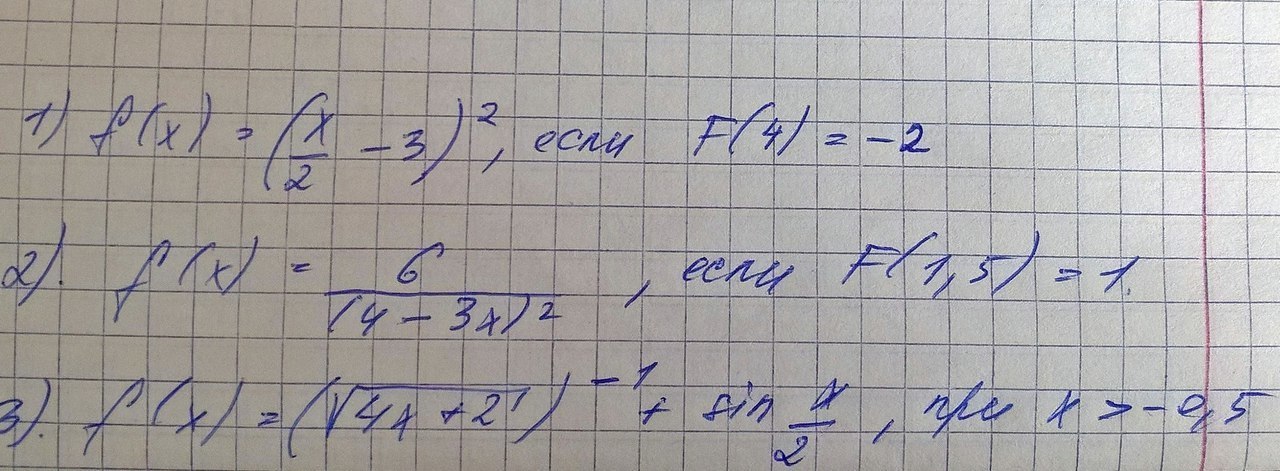 1) f(x) = (x/2 - 3)², если F(4) = -2
2). f(x) = 6/(4 - 3x)², если F(1,5) = 1.
3). f(x) = (√4x + 2)⁻¹ + sin x/2, при x > -0,5